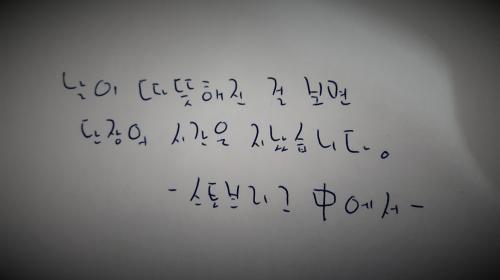 날이 따뜻해진 걸 보면
단장의 시간은 지났습니다.
-스토브리그 中에서-